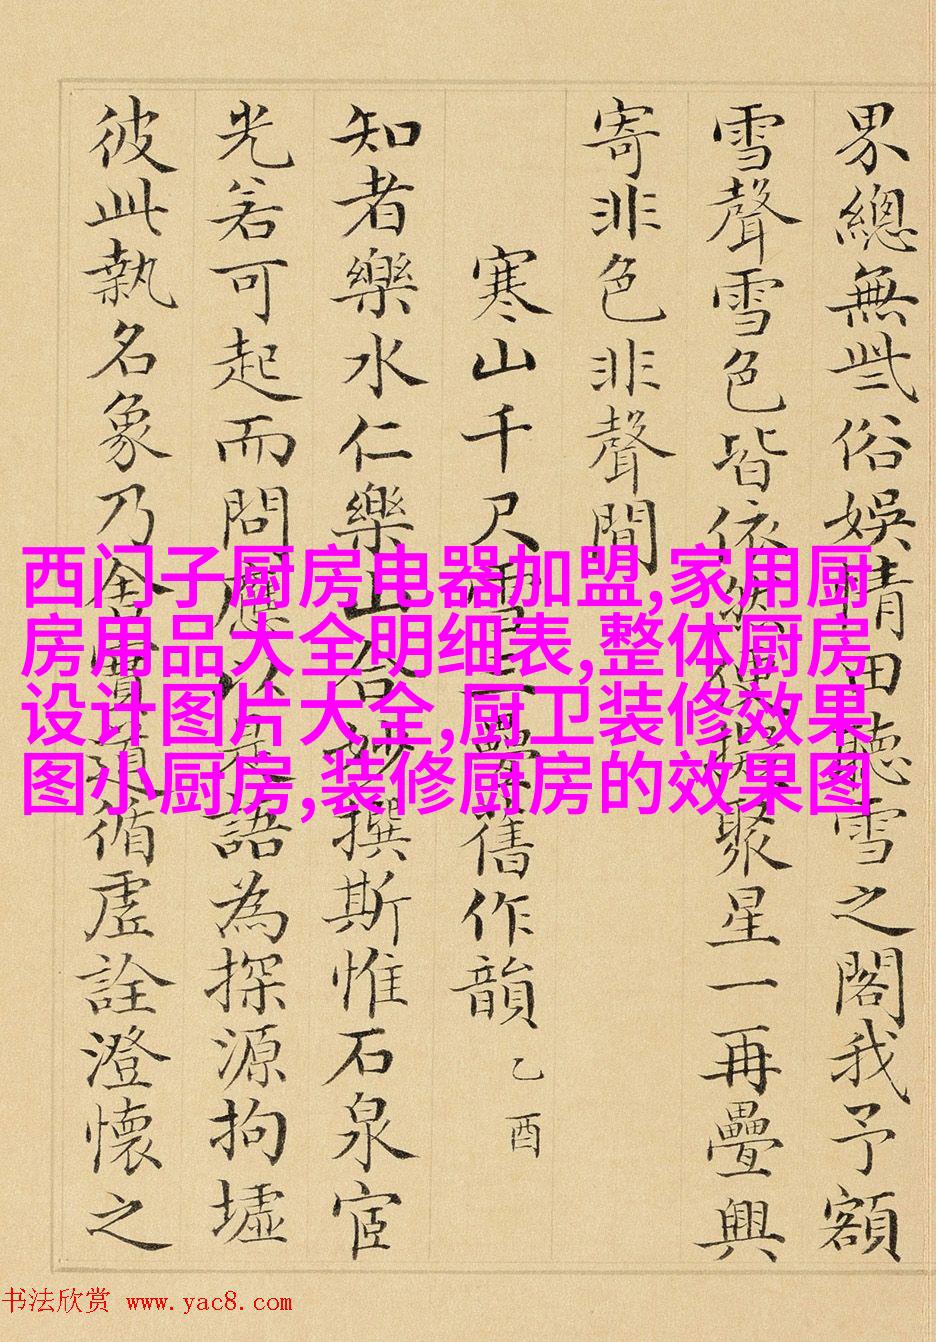 界總無些俗娛情田聽雪之閣我予額
雪聲雪色皆依擬聚星一再疊興
寄非色非聲間
寒山千尺雪三疊舊作韻 乙酉
知者樂水仁樂山合妙撰斯惟石泉宦
光若可起而問應以是語為探源拘墟
彼此執名象乃循虛詮澄懷之
西门子厨房电器加盟,家用厨
房用品大全明细表,整体厨房
设计图片大全,厨卫装修效果
图小厨房,装修厨房的效果图
书法欣赏 www.yac8.com